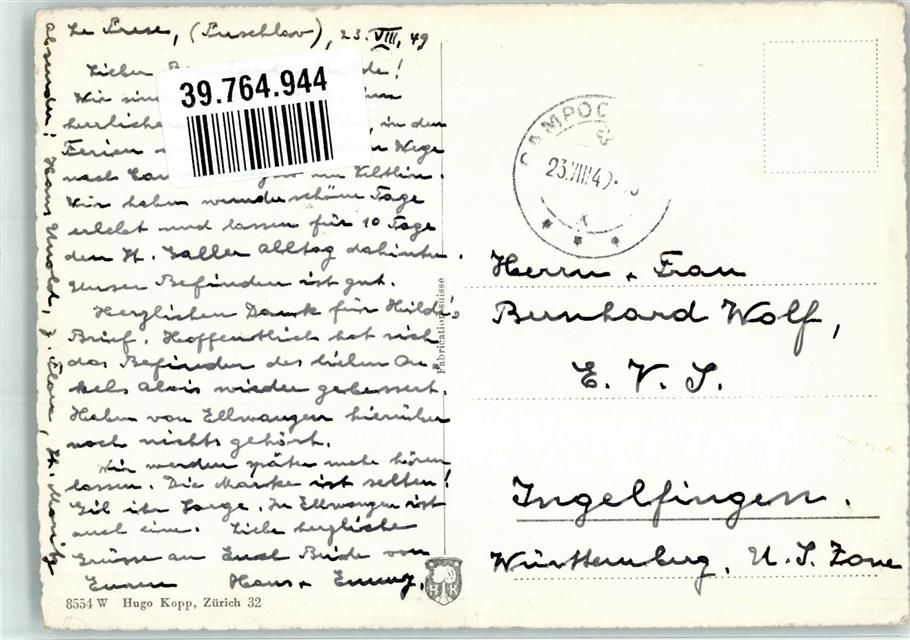 Le Prese, (Puschlav), 23. VIII. 49
Lieber de!
39.764.944
Wir sin
herrliche in den
Ferien Wege
nach im Veltlin.
Wir haben wunderschöne Tage
erlebt und lassen für 10 Tage
den St. Galler Alltag dahinten.
Unser Befinden ist gut.
Herzlichen Dank für Hildi's
Brief. Hoffentlich hat sich
das Befinden des lieben On-
kels Alois wieder gebessert.
Haben von Ellwangen hierüber
noch nichts gehört.
Wir werden später mehr hören
lassen. Die Marke ist selten!
In Ellwangen ist
auch eine. Liebe herzliche
Grüsse an Euch Beide von
Euren Hans +
Absender: Hans St. Moritz
8554 W Hugo Kopp, Zürich 32
Fabrication suisse
H K
CAMPOC
23.VIII.49
Herrn + Frau
Bernhard Wolf,
E. V. S.
Ingelfingen.
Württemberg, U.S. Zone